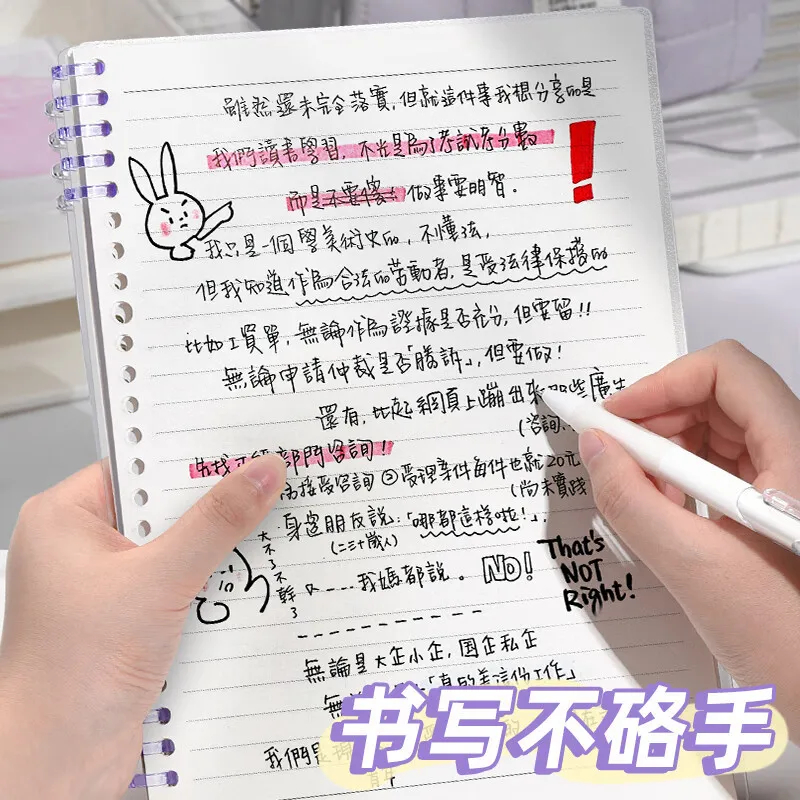 雖然還未完全落實,但就這件事我想分享的是
我們讀書學習,不光是為了考試考分數
而是不要傻 做事要明智.
我只是一個學美術史的,不懂法,
但我知道作為合法的勞動者,是受法律保護的
比如工資單,無論作為證據是否充分,但要留!!
無論申請仲裁是否「勝訴」,但要做!
還有,比起網頁上蹦出來那些廣告
(咨詢
先找 部門咨詢!
接受咨詢 ②受理案件每件也就20元
(尚未實踐
身邊朋友說:「哪都這樣啦!」.
(二三十歲人)
大不了不幹了
又----我媽都說。 NO!
That's NOT Right!
無論是大企小企,国企私企
無 「真的差這份工作」
我們是
书写不硌手